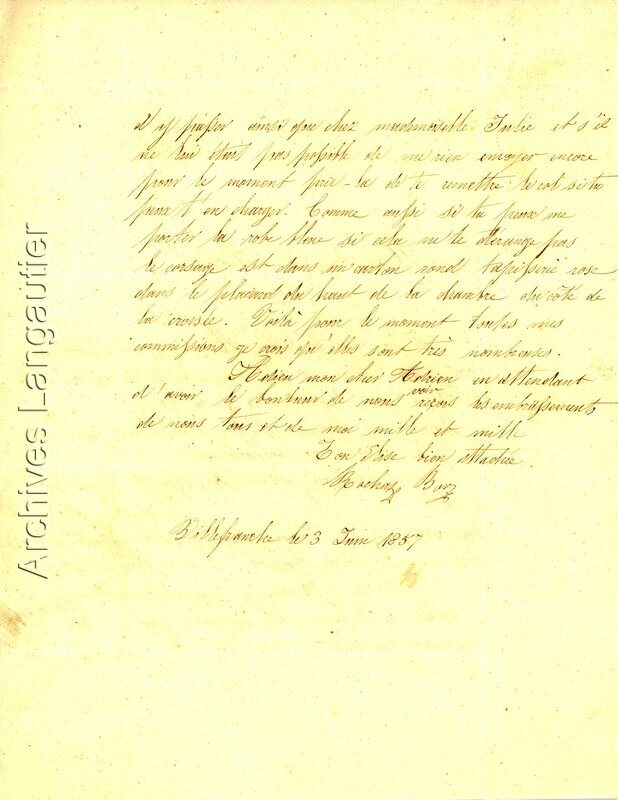 d'y passer ainsi que chez mademoiselle Julie et s'il
ne lui était pas possible de me rien envoyer encore
pour le moment prie-la de te remettre le col si tu
peux t'en charger. Comme aussi si tu peux me
porter la robe bleue si cela ne te dérange pas
le corsage est dans un carton rond tapisserie rose
dans le placard du haut de la chambre du côté de
la croisée. Voilà pour le moment toutes mes
commissions je crois qu'elles sont très nombreuses.
Adieu mon cher Adrien en attendant
d'avoir le bonheur de nous voir reçois les embrassements
de nous tous et de moi mille et mille
Ton Elise bien attachée
Villefranche le 3 Juin 1857
Archives Langautier